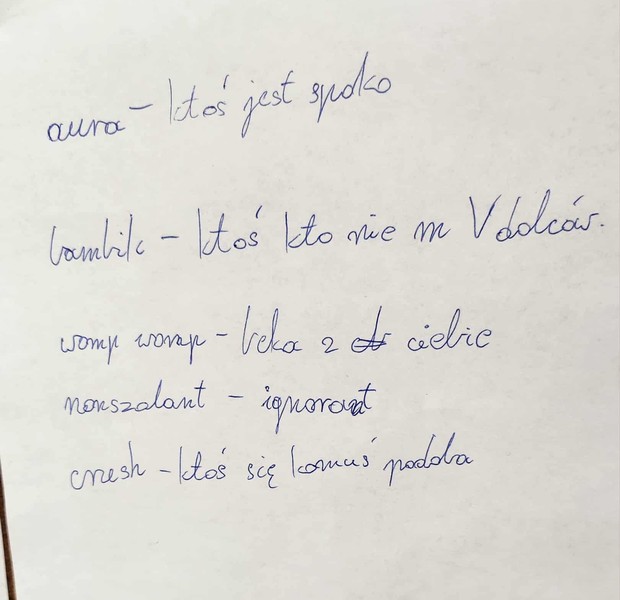 aura - ktoś jest spoko
bambik - ktoś kto nie m V dolców.
womp womp - beka z ciebie
nonszalant - ignorant
crush - ktoś się komuś podoba